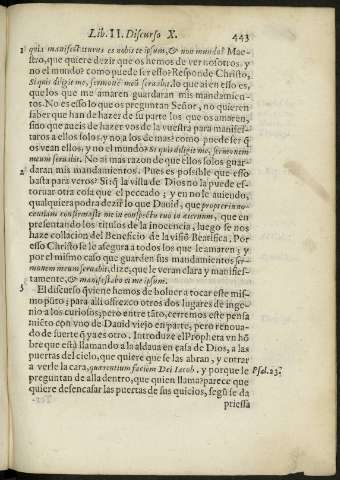 Lib. II. Discurso X. 443
1 quia manifestaturus es nobis te ipsum, & non mundo? Mae-
stro, que quiere dezir que os hemos de ver nosotros, y
no el mundo? como puede ser esto? Responde Christo,
Si quis diligit me, sermonẽ meũ seruabit. lo que ai en esso es,
que los que me amaren guardaran mis mandamien-
tos. No es esso lo que os preguntan Señor, no quieren
saber que han de hazer de su parte los que os amaren,
sino que aueis de hazer vos de la vuestra para manifes-
taros a ellos solos, y no a los de mas? como puede ser q̃
os vean ellos, y no el mundo? Si quis diligit me, sermonem
meum seruabit. No ai mas razon de que ellos solos guar-
2 daran mis mandamientos. Pues es possible que esso
basta para veros? Si: q̃ la vista de Dios no la puede es-
toruar otra cosa que el peccado; y en no le auiendo,
qualquiera podra dezir lo que Dauid, que propter in no-
centiam confirmasti me in conspectu tuo in æternum, que en
presentando los titulos de la inocencia, luego se nos
haze collacion del Beneficio de la visiõ Beatifica. Por
esso Christo se le asegura a todos los que le amaren; y
por el mismo caso que guarden sus mandamientos ser-
monem meum seruabit, dize, que le veran clara y manifies-
tamente, & manifestabo ei me ipsum.
3 El discurso q̃ viene hemos de boluer a tocar este mis-
mo pũto; para alli ofrezco otros dos lugares de inge-
nio a los curiosos; pero entre tãto, cerremos este pensa
miẽto con vno de Dauid viejo en parte, pero renoua-
do de suerte q̃ ya es otro. Introduze el Propheta vn hõ
bre que està llamando a la aldaua en casa de Dios, a las
puertas del cielo, que quiere que se las abran, y entrar
a verle la cara, quærentium faciem Dei Iacob. y porque le Psal. 23.
preguntan de alla dentro, que quien llama? parece que
quiere desencasar las puertas de sus quicios, segũ se da
priessa